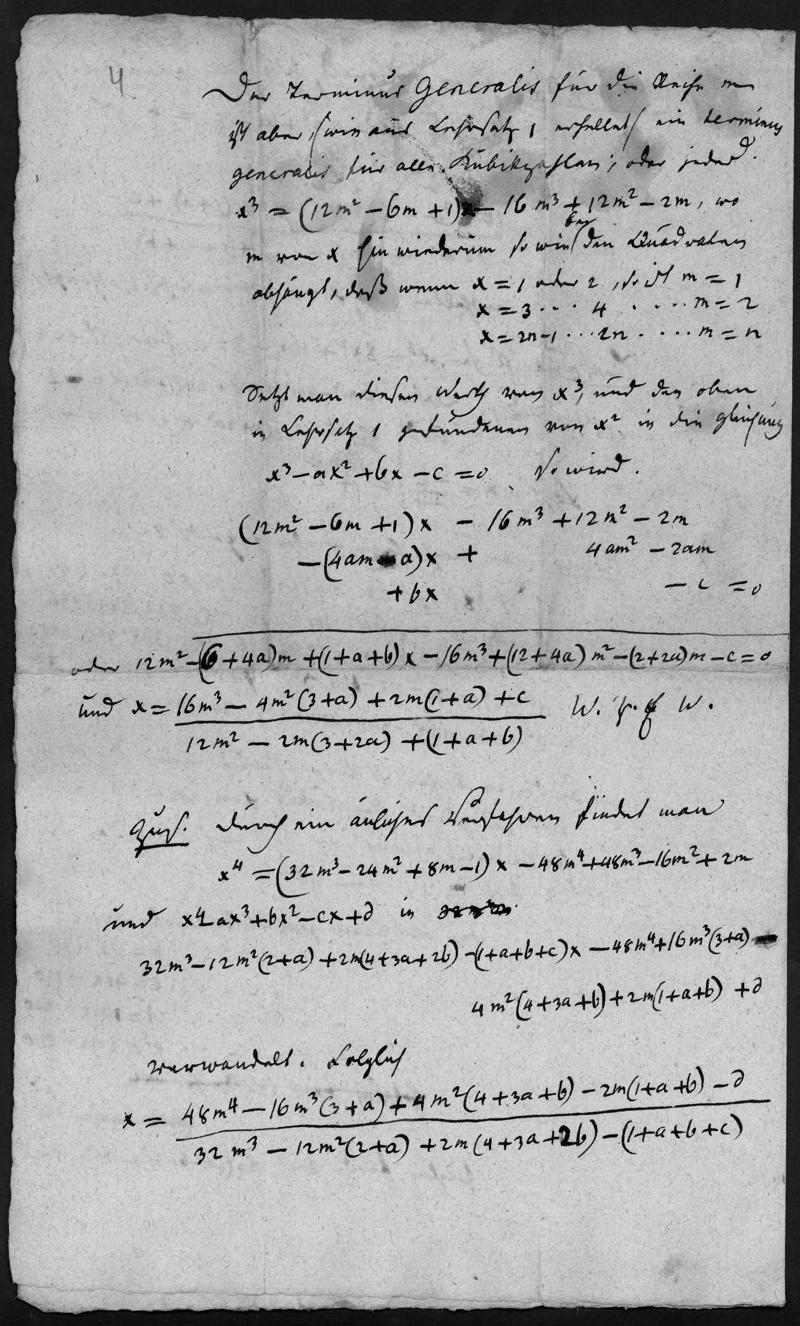 4
Der Terminus Generalis für die Reihe m
ist aber, (wie aus Lehrsatz 1 erhellet) ein terminus
generalis für alle Kubikzahlen; oder jedes
x³ = (12m² – 6m + 1)x – 16m³ + 12m² – 2m, wo
m von x hinwiederum so wie bey den Quadraten
abhängt, daß wenn x = 1 oder 2, so ist m = 1
x = 3 ... 4 .... m = 2
x = 2n-1 ... 2n .... m = n
Setzt man diesen Werth von x³, und den oben
in Lehrsatz 1 gefundenen von x² in die gleichung
x³ – ax² + bx – c = 0 so wird.
(12m² – 6m + 1)x – 16m³ + 12m² – 2m
– (4am – a)x + 4am² – 2am
+ bx – c = 0
oder 12m² – (6 + 4a)m + (1+a+b)x – 16m³ + (12+4a)m² – (2+2a)m – c = 0
und x = 16m³ – 4m² (3+a) + 2m(1+a) + c W. z. W.
12m² – 2m(3+2a) + (1+a+b)
Zus. Durch ein änliches Verfahren findet man
x⁴ = (32m³ – 24m² + 8m – 1)x – 48m⁴ + 48m³ – 16m² + 2m
und x⁴-ax³+bx²–cx+d in
32m³ – 12m²(2+a) + 2m(4+3a+2b) – (1+a+b+c)x – 48m⁴ + 16m³(3+a) –
4m²(4+3a+b) + 2m(1+a+b) + d
verwandelt. Folglich
x = 48m⁴ – 16m³(3+a) + 4m²(4+3a+b) – 2m(1+a+b) – d
32m³ – 12m²(2+a) + 2m(4+3a+2b) – (1+a+b+c)